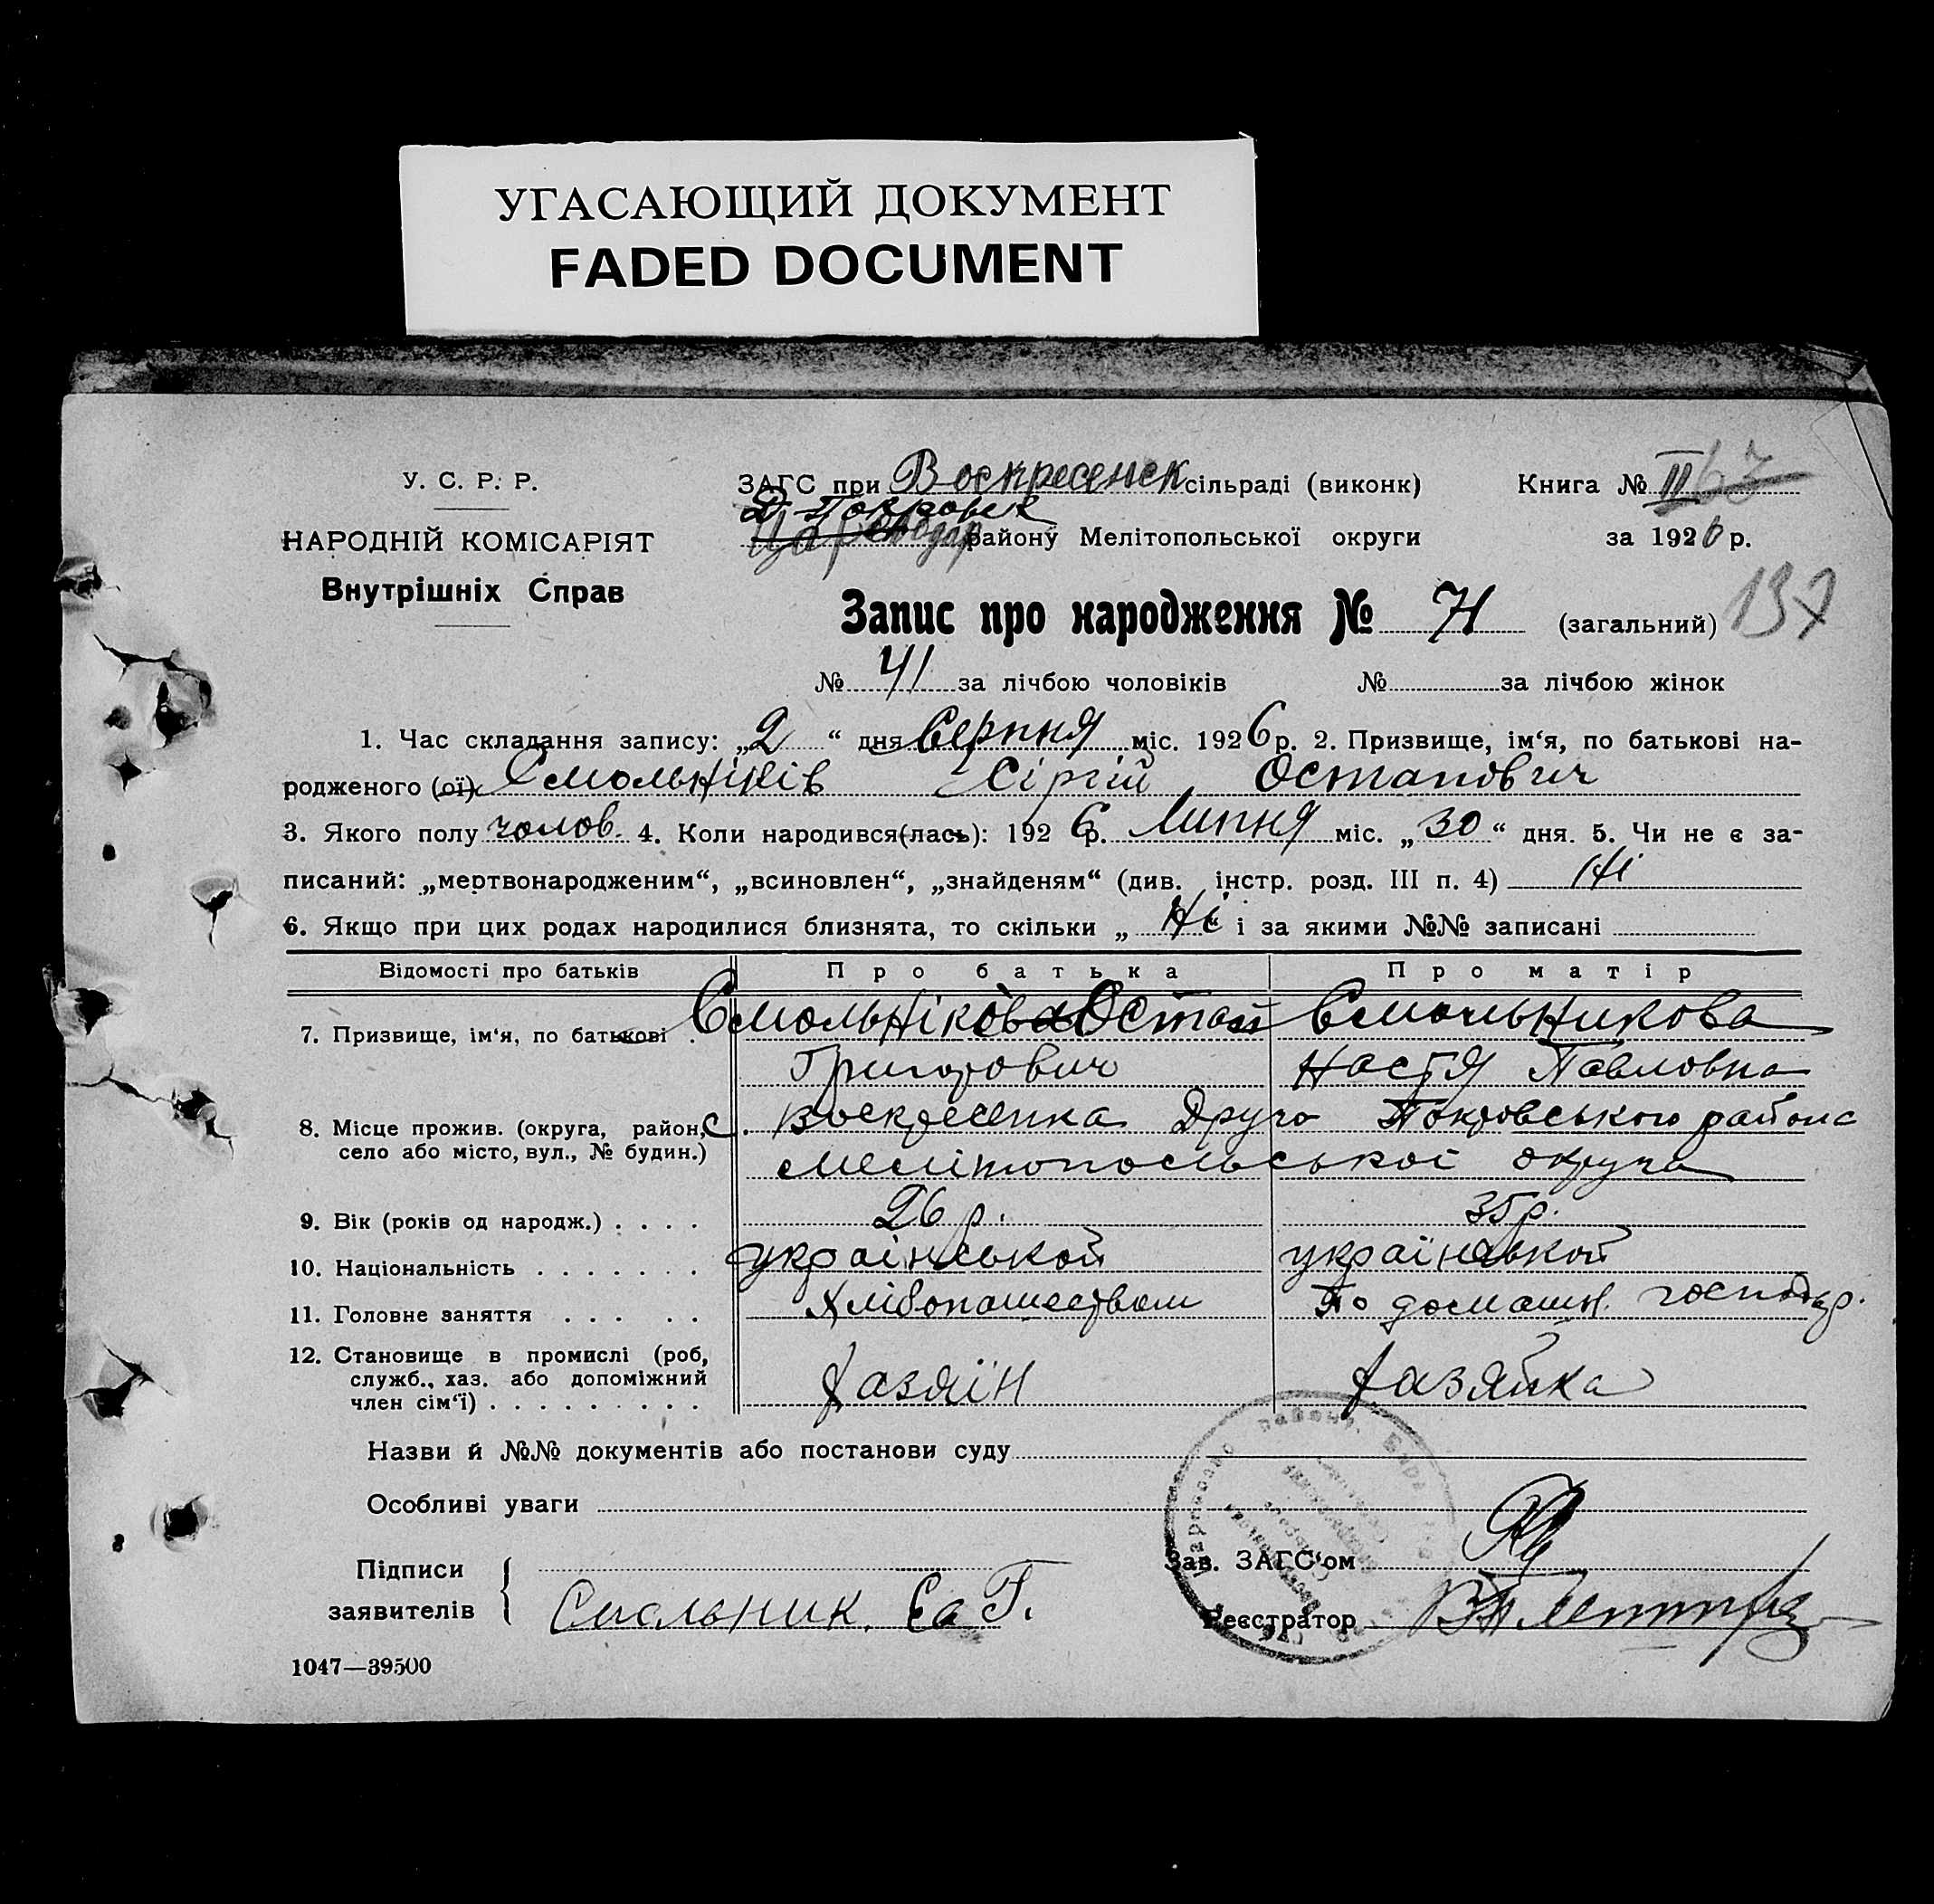 УГАСАЮЩИЙ ДОКУМЕНТ
FADED DOCUMENT
У. С. Р. Р.
НАРОДНІЙ КОМІСАРІЯТ
Внутрішніх Справ
ЗАГС при Воскресенск сільраді (виконк)
Д Покровск
району Мелітопольської округи
Книга № II 67
за 1926 р.
137
Запис про народження № 71 (загальний)
№ 41 за лічбою чоловіків № за лічбою жінок
1. Час складання запису: „2“ дня Серпня міс. 1926 р. 2. Призвище, ім‘я, по батькові на-
родженого (ої) Смольніків Сіргій Остапович
3. Якого полу чолов. 4. Коли народився(лась): 1926 р. Липня міс. „30“ дня. 5. Чи не є за-
писаний: „мертвонародженим“, „всиновлен“, „знайденям“ (див. інстр. розд. III п. 4) Ні
6. Якщо при цих родах народилися близнята, то скільки „ Ні “ і за якими №№ записані
Відомості про батьків Про батька Про матір
7. Призвище, ім‘я, по батькові . Смольнікова Остап Смольникова
Григорович Настя Павловна
8. Місце прожив. (округа, район, с. Воскресенка Друго Покровського района
село або місто, вул., № будин.) Мелітопольської округа
9. Вік (років од народж.) . . . . 26 р. 35 р.
10. Національність . . . . . . . українськой українськой
11. Головне заняття . . . . . Хлібопашеством По домашн. господар.
12. Становище в промислі (роб,
служб., хаз. або допоміжний
член сім‘ї) . . . . . . . . . Хазяїн Хазяйка
Назви й №№ документів або постанови суду
Особливі уваги
Підписи
заявителів
Смольник. Г.
Зав. ЗАГС‘ом
Реєстратор
1047—39500